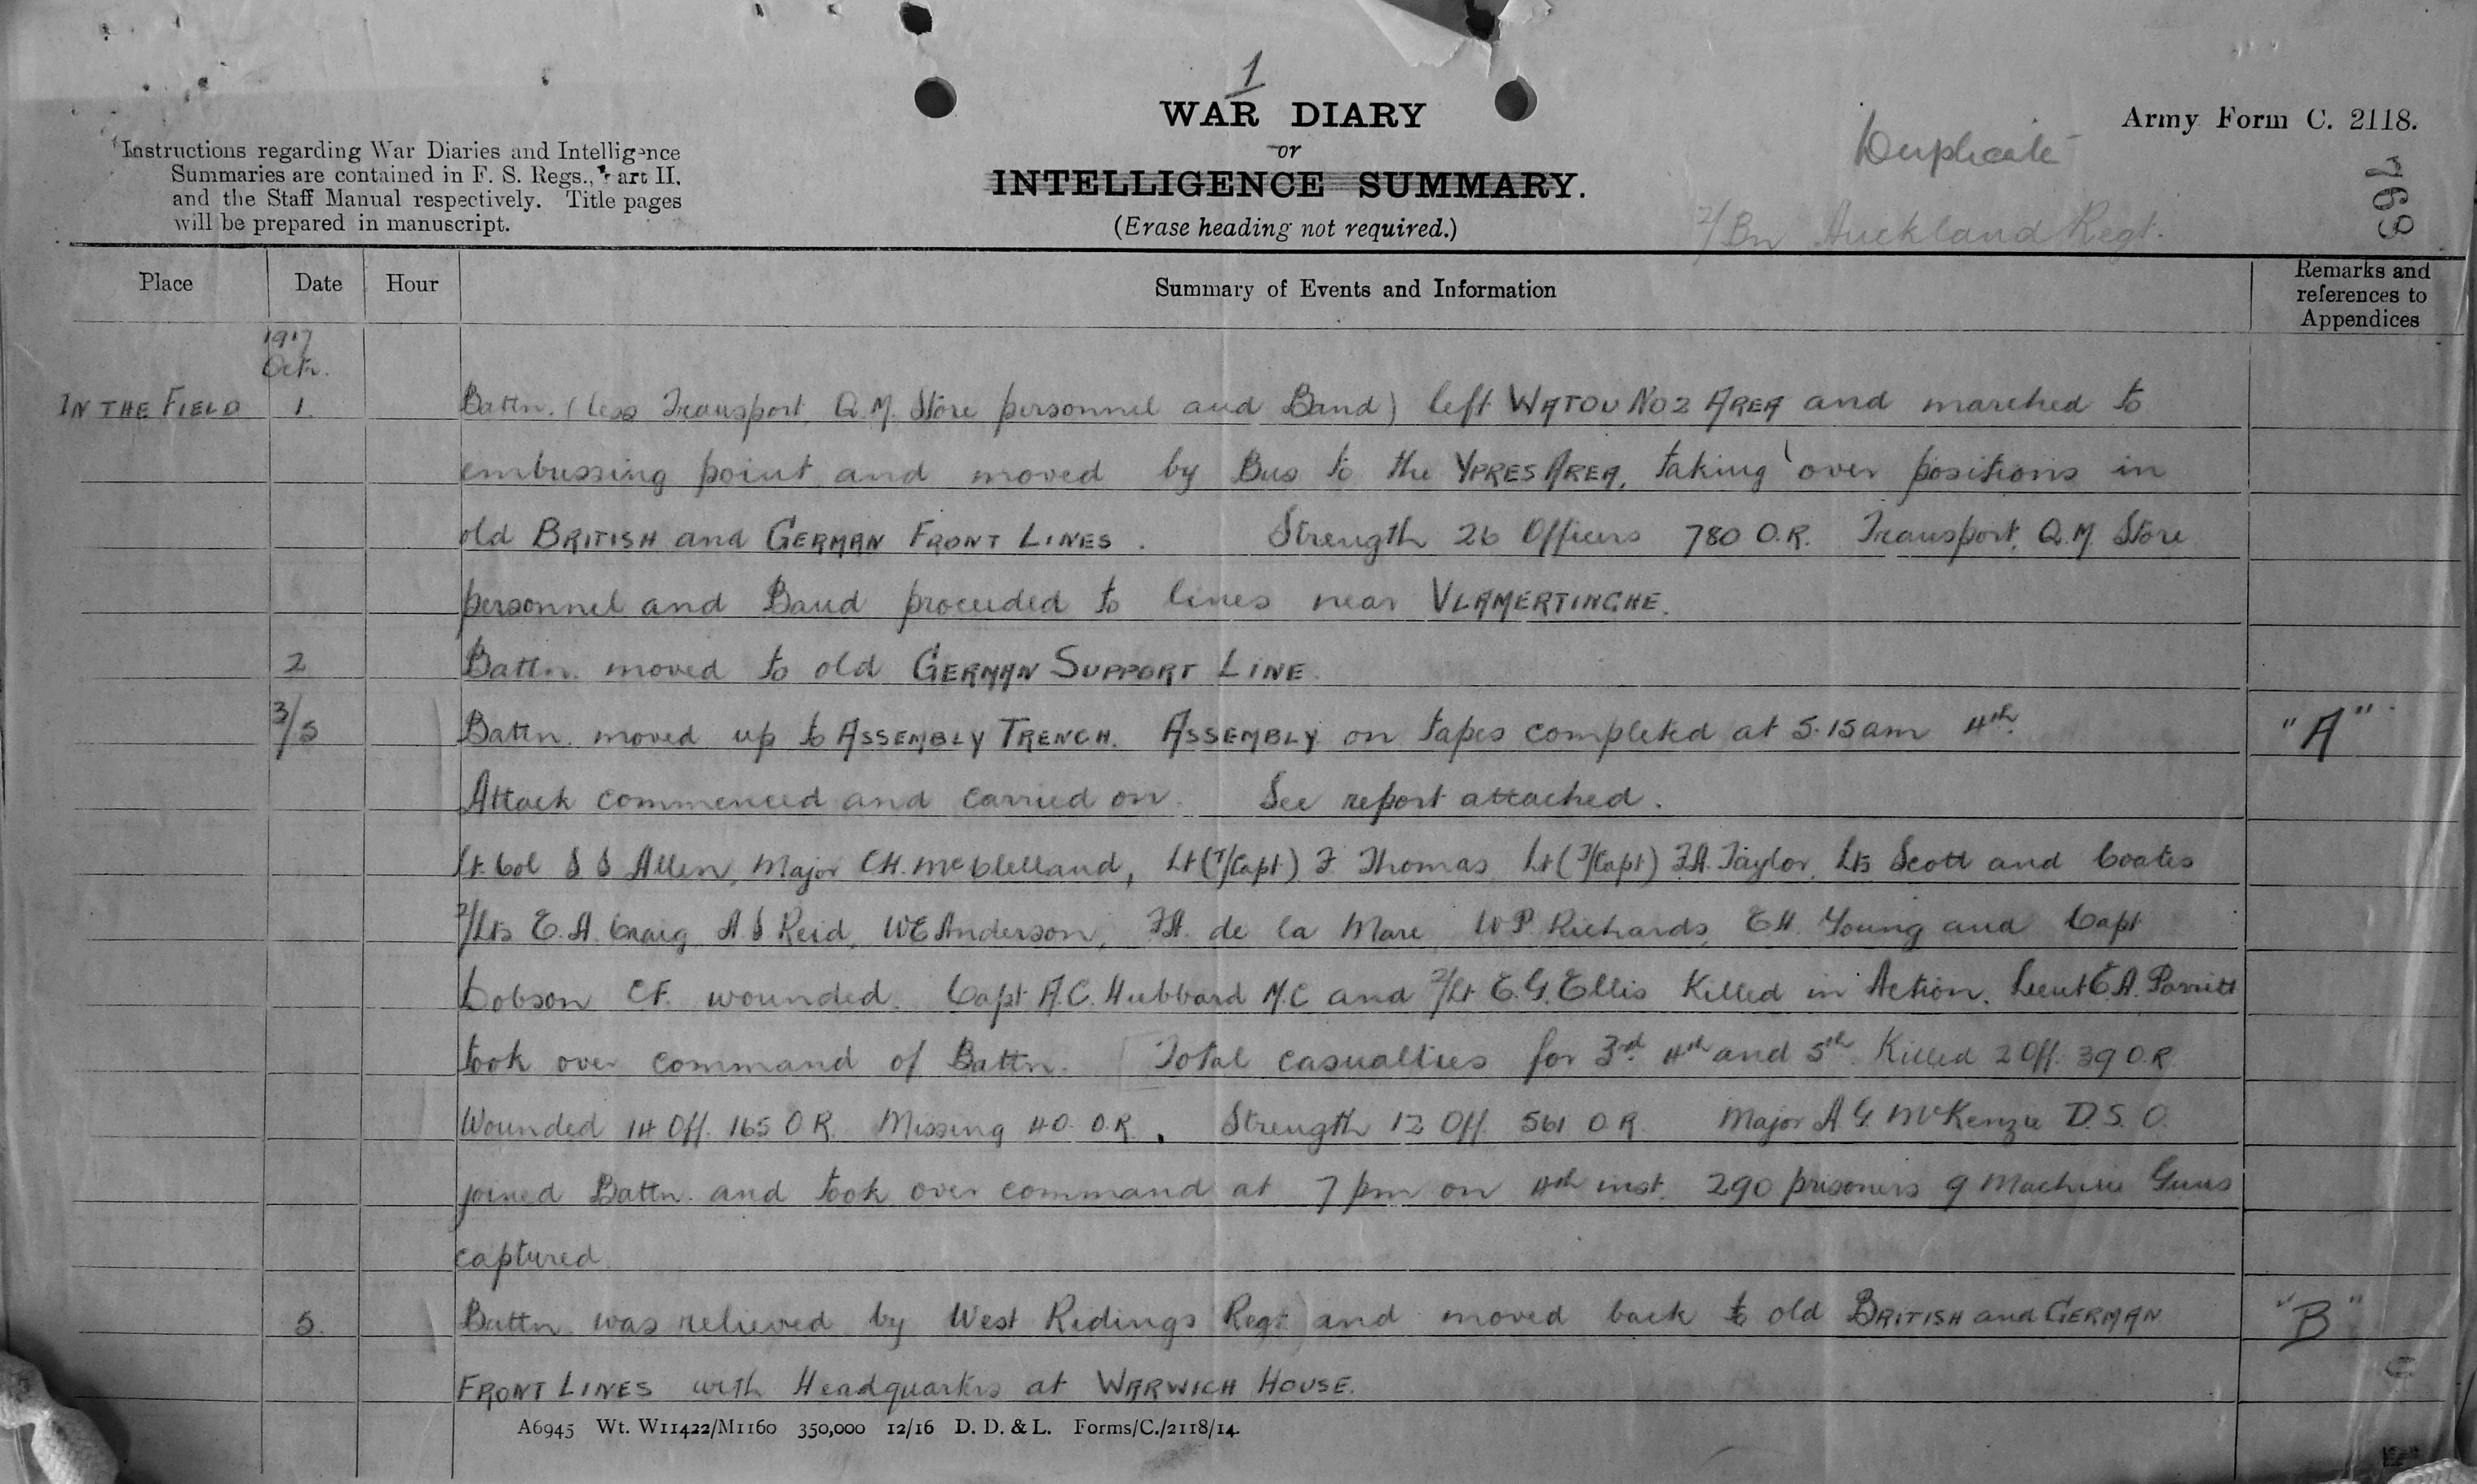 1
WAR DIARY
or
INTELLIGENCE SUMMARY.
(Erase heading not required.)
Instructions regarding War Diaries and Intelligence
Summaries are contained in F. S. Regs., Part II,
and the Staff Manual respectively. Title pages
will be prepared in manuscript.
Duplicate
Army Form C. 2118.
2/Bn Auckland Regt.
Place Date Hour Summary of Events and Information Remarks and references to Appendices
1917
Oct.
IN THE FIELD 1. Battn. (less Transport, Q.M. Store personnel and Band) left WATOU NO 2 AREA and marched to
embussing point and moved by Bus to the YPRES AREA, taking over positions in
old BRITISH and GERMAN FRONT LINES. Strength 26 Officers 780 O.R. Transport, Q.M. Store
personnel and Band proceeded to lines near VLAMERTINGHE.
2 Battn. moved to old GERMAN SUPPORT LINE.
3/5 Battn. moved up to ASSEMBLY TRENCH. ASSEMBLY on tapes completed at 5.15am 4th. "A"
Attack commenced and carried on. See report attached.
Lt. Col S S Allen, Major C.H. McClelland, Lt (T/Capt) F. Thomas Lt (T/Capt) F.A. Taylor, Lts Scott and Coates
2/Lts E. A. Craig, A S Reid, W E Anderson, F.A. de la Mare W P. Richards, E H. Young and Capt
Dobson C.F. wounded. Capt A.C. Hubbard M.C and 2/Lt E.G. Ellis Killed in Action. Lieut E.A. Porritt
took over command of Battn. Total casualties for 3rd 4th and 5th. Killed 2 Off. 39 O.R.
Wounded 14 Off. 165 O.R. Missing 40 O.R. Strength 12 Off. 561 O.R. Major A G McKenzie D.S.O.
joined Battn. and took over command at 7 pm on 4th inst. 290 prisoners 9 Machine Guns
captured.
5. Battn. was relieved by West Ridings Regt and moved back to old BRITISH and GERMAN "B"
FRONT LINES with Headquarters at WARWICH HOUSE.
A6945 Wt. W11422/M1160 350,000 12/16 D. D. & L. Forms/C./2118/14.